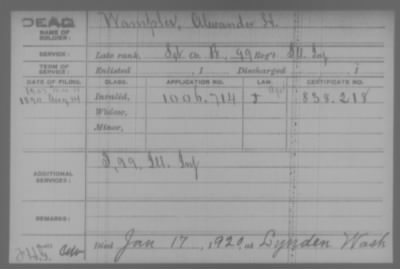 DEAD
NAME OF SOLDIER:
Wampler, Alexander H.
SERVICE:
Late rank, Co. B, 99 Reg't Ill. Inf
TERM OF SERVICE:
Enlisted , 1 Discharged , 1
DATE OF FILING. CLASS. APPLICATION NO. LAW. CERTIFICATE NO.
1890 Aug Invalid, 1006.714 838.218
Widow,
Minor,
ADDITIONAL SERVICES:
99 Ill. Inf
REMARKS:
Died Jan 17, 1920, at Lynden Wash